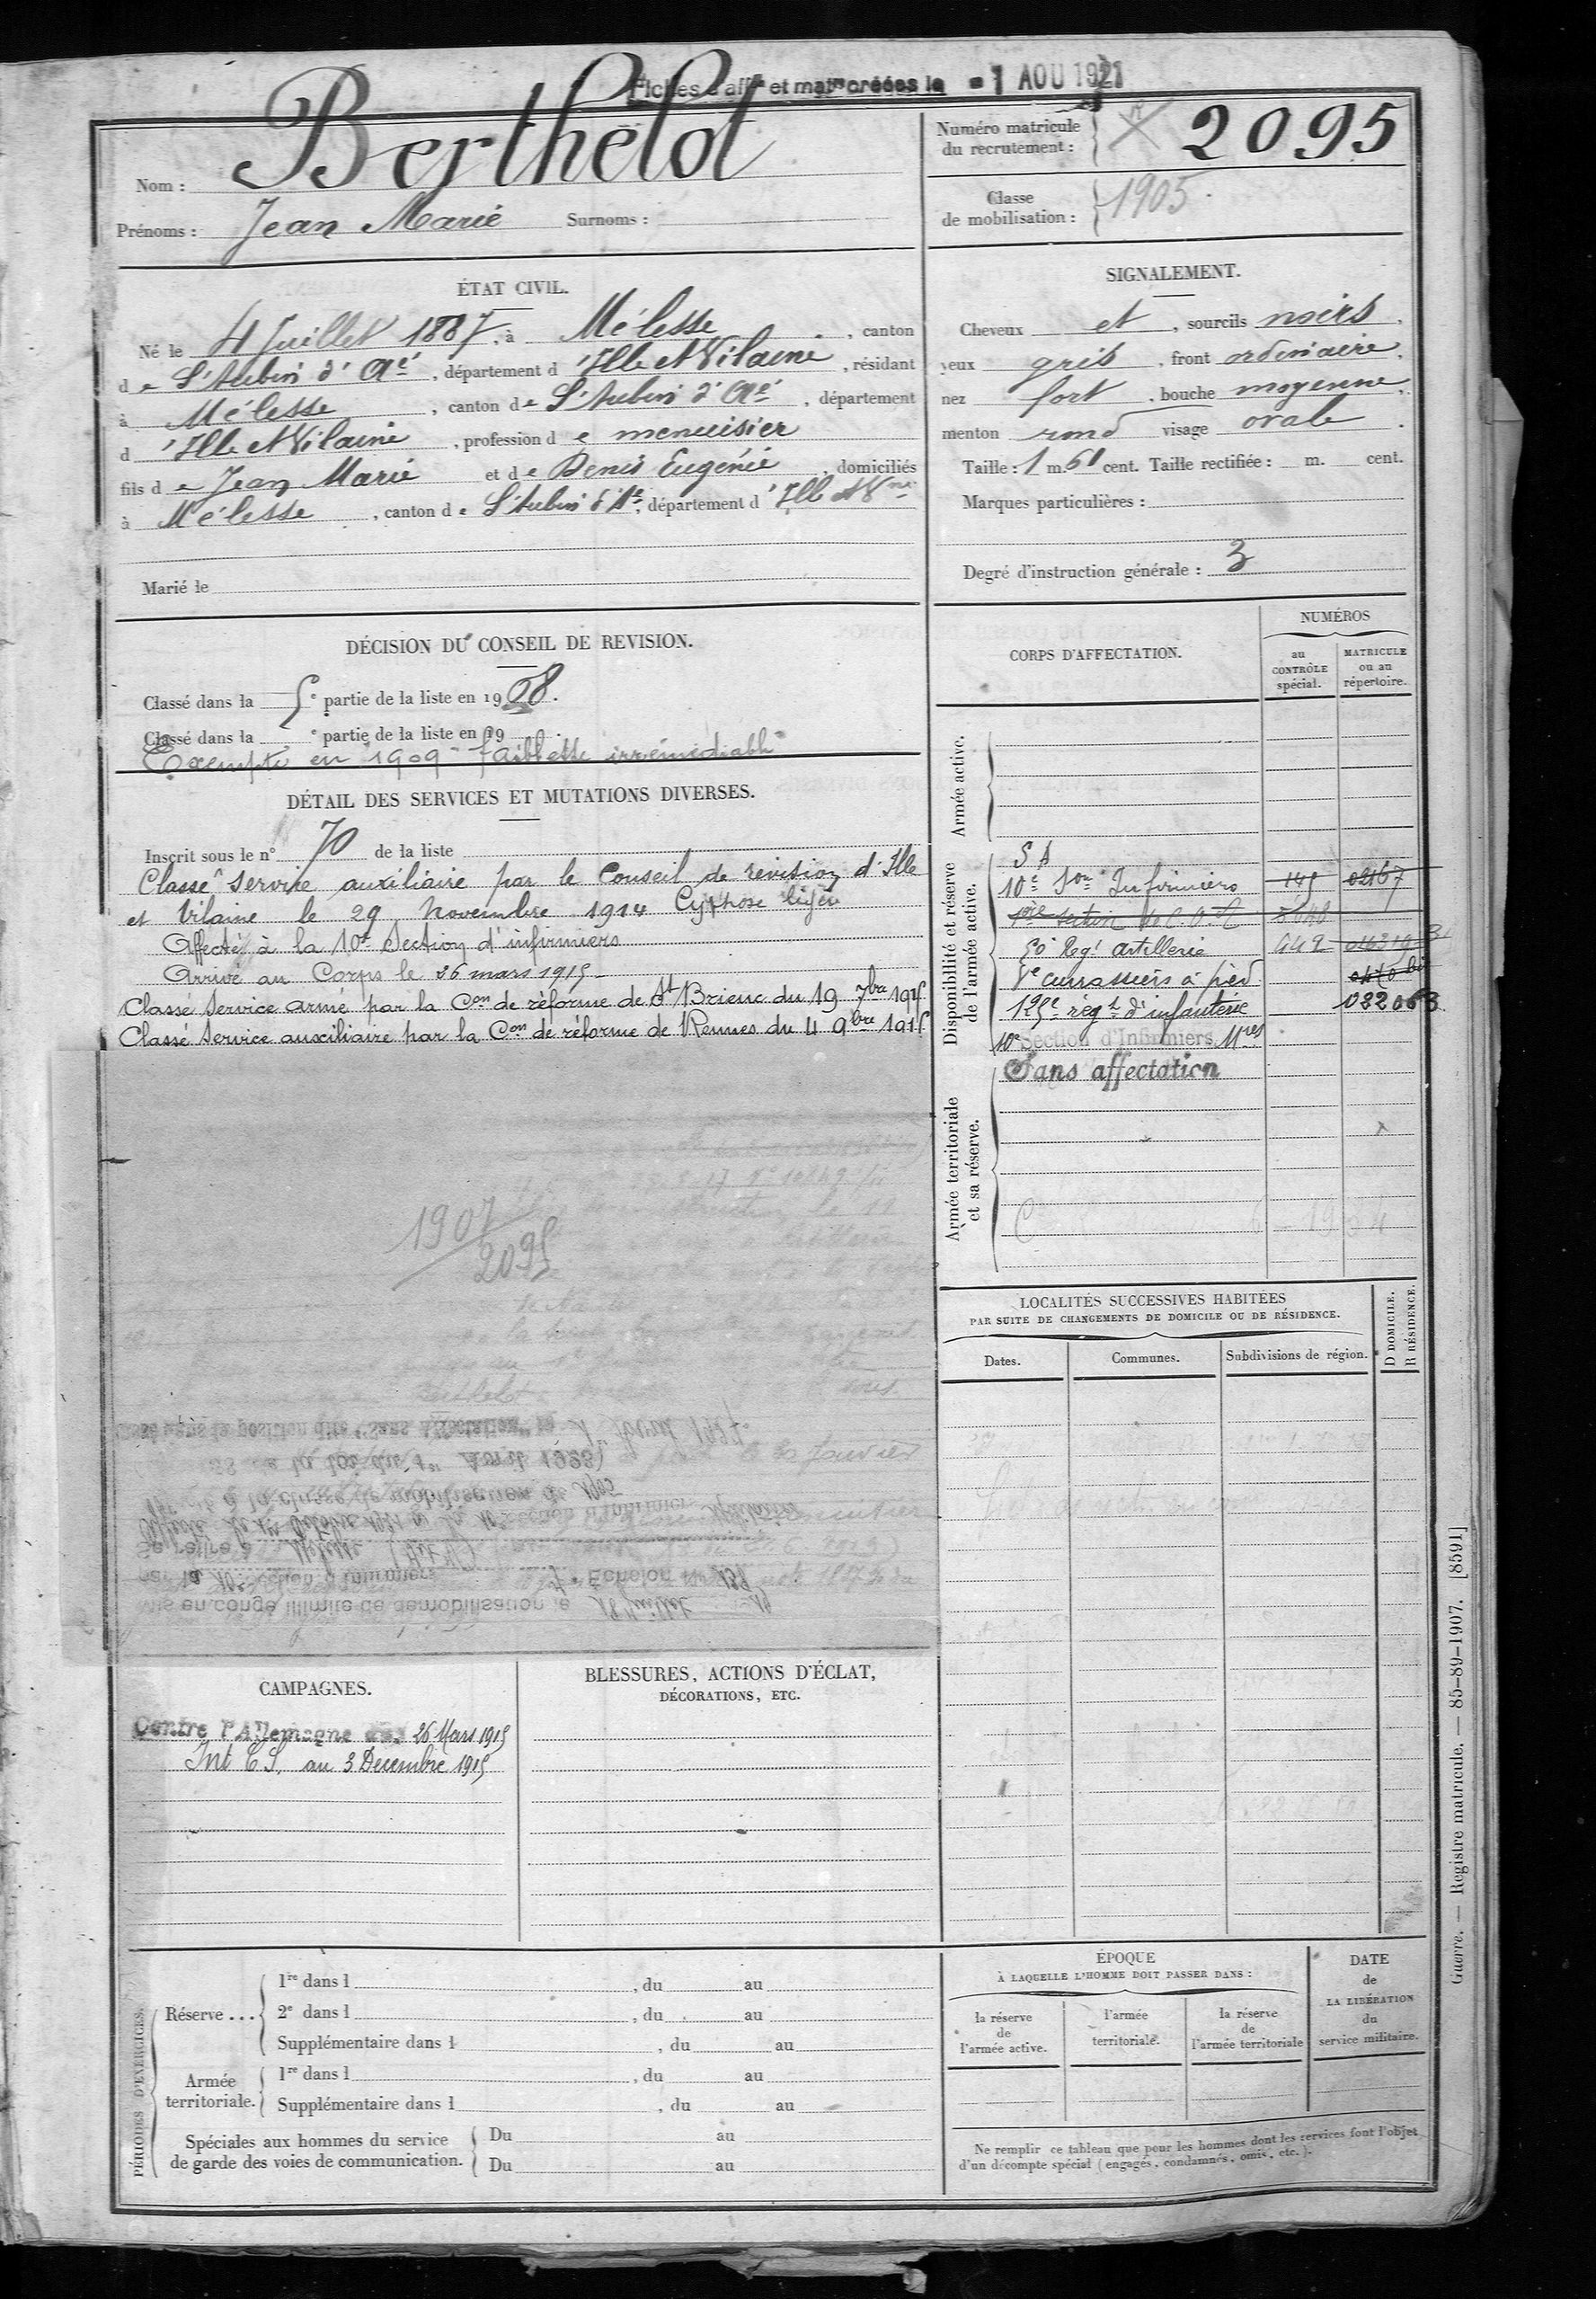 Fiches d'aff<sup>on</sup> et mat<sup>le</sup> créées le = 1 AOU 1921
Nom : Berthelot
Prénoms : Jean Marie Surnoms :
Numéro matricule du recrutement : 2095
Classe de mobilisation : 1905.
ÉTAT CIVIL.
Né le 4 Juillet 1887, à Mélesse, canton
de St Aubin d'A<sup>né</sup>, département d'Ille et Vilaine, résidant
à Mélesse, canton de St Aubin d'A<sup>né</sup>, département
d'Ille et Vilaine, profession de menuisier
fils de Jean Marie et de Denis Eugénie, domiciliés
à Mélesse, canton de St Aubin d'A<sup>né</sup>, département d'Ille et V<sup>ne</sup>
Marié le
SIGNALEMENT.
Cheveux et, sourcils noirs,
yeux gris, front ordinaire,
nez fort, bouche moyenne,
menton rond visage ovale.
Taille : 1 m. 61 cent. Taille rectifiée : m. cent.
Marques particulières :
Degré d'instruction générale : 3
DÉCISION DU CONSEIL DE REVISION.
Classé dans la 5<sup>e</sup> partie de la liste en 1908.
Classé dans la <sup>e</sup> partie de la liste en 19 .
Exempté en 1909 - faiblesse irrémédiable
DÉTAIL DES SERVICES ET MUTATIONS DIVERSES.
Inscrit sous le n° 70 de la liste
Classé service auxiliaire par le Conseil de revision d'Ille
et Vilaine le 29 Novembre 1914 Cyphose légère
Affecté à la 10<sup>e</sup> Section d'infirmiers
Arrivé au Corps le 26 mars 1915
Classé Service armé par la C<sup>on</sup> de réforme de St Brieuc du 19 7<sup>bre</sup> 1915
Classé Service auxiliaire par la C<sup>on</sup> de réforme de Rennes du 4 9<sup>bre</sup> 1915
1907
2095
CORPS D'AFFECTATION.
NUMÉROS
au CONTRÔLE spécial.
MATRICULE ou au répertoire.
Armée active.
Disponibilité et réserve de l'armée active.
S A
10<sup>e</sup> S<sup>on</sup> Infirmiers 145 02167
1<sup>ère</sup> section de C.O.A
50<sup>e</sup> Reg<sup>t</sup> Artillerie
cuirassiers à pied
125<sup>e</sup> rég<sup>t</sup> d'infanterie 032063
10<sup>e</sup> Section d'Infirmiers M<sup>res</sup>
Armée territoriale et sa réserve.
Sans affectation
LOCALITÉS SUCCESSIVES HABITÉES
PAR SUITE DE CHANGEMENTS DE DOMICILE OU DE RÉSIDENCE.
Dates.
Communes.
Subdivisions de région.
D DOMICILE.
R RÉSIDENCE.
CAMPAGNES.
Contre l'Allemagne du 26 Mars 1915
Int C S, au 3 Decembre 1915
BLESSURES, ACTIONS D'ÉCLAT,
DÉCORATIONS, ETC.
PÉRIODES D'EXERCICES.
Réserve ...
1<sup>re</sup> dans l , du au
2<sup>e</sup> dans l , du au
Supplémentaire dans l , du au
Armée territoriale.
1<sup>re</sup> dans l , du au
Supplémentaire dans l , du au
Spéciales aux hommes du service
de garde des voies de communication.
Du au
Du au
ÉPOQUE
À LAQUELLE L'HOMME DOIT PASSER DANS :
la réserve de l'armée active.
l'armée territoriale.
la réserve de l'armée territoriale
DATE de LA LIBÉRATION du service militaire.
Ne remplir ce tableau que pour les hommes dont les services font l'objet
d'un décompte spécial (engagés, condamnés, omis, etc.).
Guerre. — Registre matricule. — 85-89-1907. [8591]